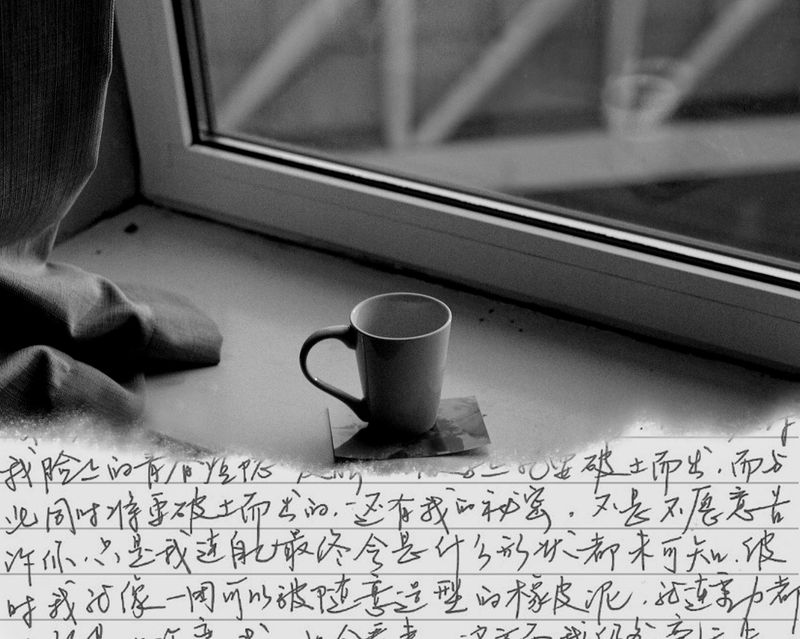 我脸上的 要破土而出,而与
此同时将要破土而出的,还有我的秘密。不是不愿意告
诉你,只是我连自己最终会是什么形状都未可知,彼
时我就像一团可以被随意造型的橡皮泥,就连 力都